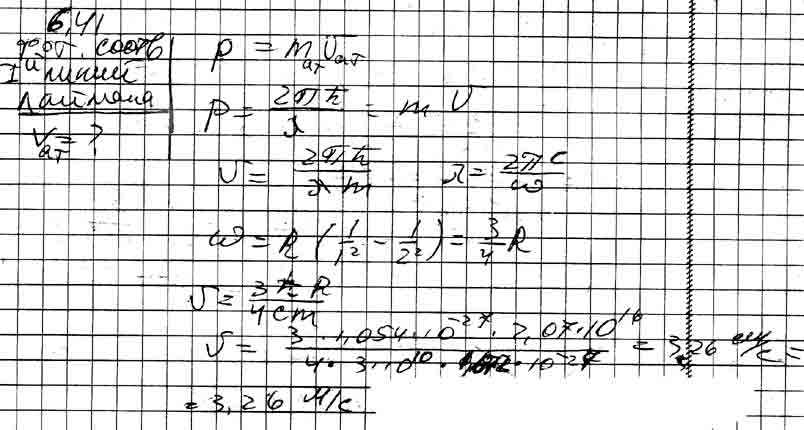 6,41
фот. соотв
I й линии
Лаймана
v_ат = ?
p = m_ат v_ат
p = 2πħ/λ = m v
v = 2πħ/λm   λ = 2πc/ω
ω = R (1/1² - 1/2²) = 3/4 R
v = 3ħR/4cm
v = 3 · 1,054 · 10⁻²⁷ · 2,07 · 10¹⁶ / 4 · 3 · 10¹⁰ · 10⁻²⁴ = 3,26 см/с =
= 3,26 м/с